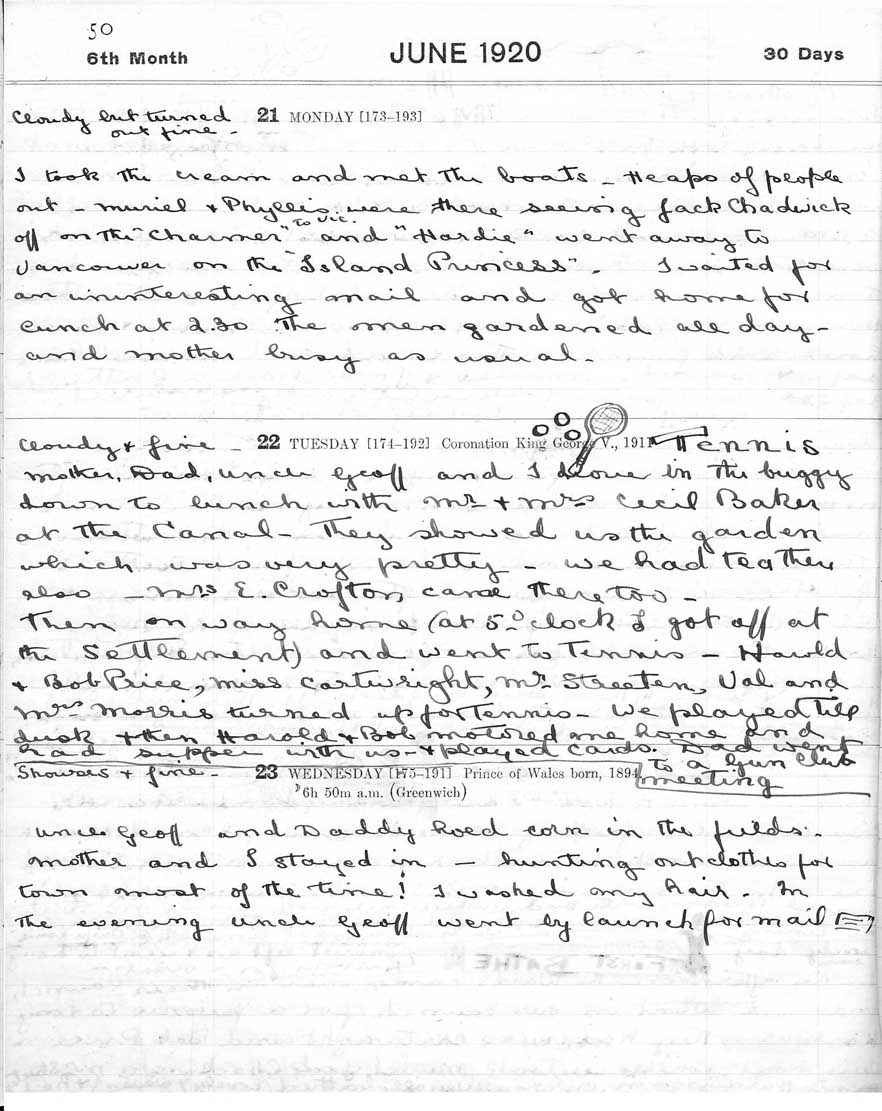 50
6th Month JUNE 1920 30 Days
Cloudy but turned 21 MONDAY [173–193]
out fine –
I took the cream and met the boats – Heaps of people
out – Muriel & Phyllis were there seeing Jack Chadwick
off on the "Charmer" to Vic. and "Hardie" went away to
Vancouver on the "Island Princess". I waited for
an uninteresting mail and got home for
lunch at 2.30 The men gardened all day –
and mother busy as usual.
Cloudy & fine – 22 TUESDAY [174–192] Coronation King George V., 1911 Tennis
Mother, Dad, Uncle Geoff and I drove in the buggy
down to lunch with Mr & Mrs Cecil Baker
at the Canal – They showed us the garden
which was very pretty – we had tea there
also – Mrs E. Crofton came there too –
Then on way home (at 5 o'clock I got off at
the Settlement) and went to Tennis – Harold
& Bob Price, Miss Cartwright, Mr. Streaten, Val and
Mrs Morris turned up for Tennis – We played till
dusk & then Harold & Bob motored me home and
had supper with us – & played cards. Dad went
to a Gun Club
meeting
Showers & fine – 23 WEDNESDAY [175–191] Prince of Wales born, 1894
6h 50m a.m. (Greenwich)
Uncle Geoff and Daddy hoed corn in the fields.
Mother and I stayed in – hunting out clothes for
town most of the time! I washed my hair. In
the evening Uncle Geoff went by launch for mail